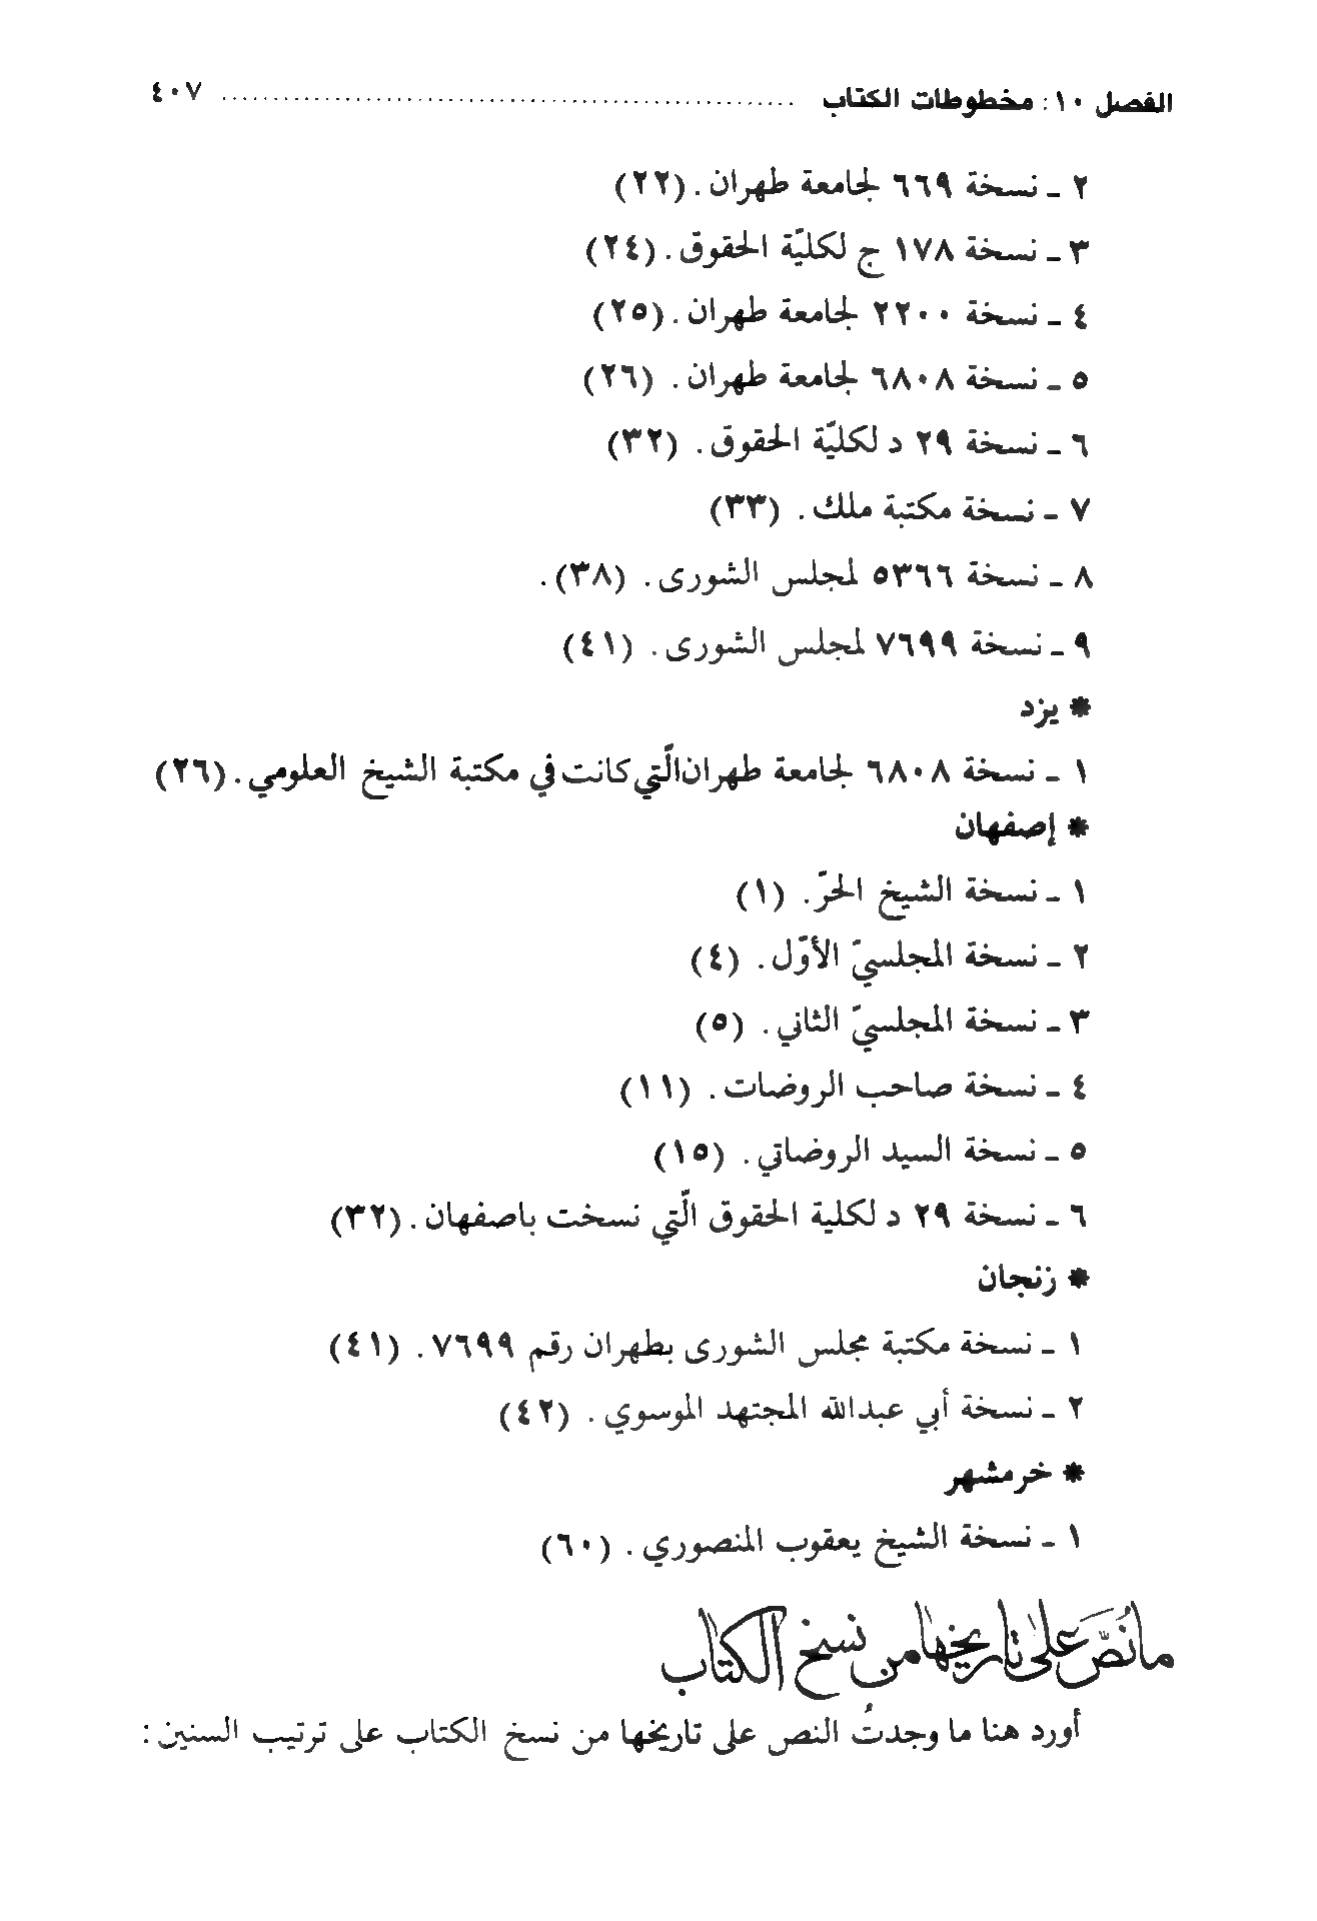 الفصل ١٠: مخطوطات الكتاب ........................................................ ٤٠٧
٢ ـ نسخة ٦٦٩ لجامعة طهران. (٢٢)
٣ ـ نسخة ١٧٨ ج لكليّة الحقوق. (٢٤)
٤ ـ نسخة ٢٢٠٠ لجامعة طهران. (٢٥)
٥ ـ نسخة ٦٨٠٨ لجامعة طهران. (٢٦)
٦ ـ نسخة ٢٩ د لكليّة الحقوق. (٣٢)
٧ ـ نسخة مكتبة ملك. (٣٣)
٨ ـ نسخة ٥٣٦٦ لمجلس الشورى. (٣٨).
٩ ـ نسخة ٧٦٩٩ لمجلس الشورى. (٤١)
* يزد
١ ـ نسخة ٦٨٠٨ لجامعة طهران الّتي كانت في مكتبة الشيخ العلومي. (٢٦)
* إصفهان
١ ـ نسخة الشيخ الحرّ. (١)
٢ ـ نسخة المجلسيّ الأوّل. (٤)
٣ ـ نسخة المجلسيّ الثاني. (٥)
٤ ـ نسخة صاحب الروضات. (١١)
٥ ـ نسخة السيد الروضاتي. (١٥)
٦ ـ نسخة ٢٩ د لكلية الحقوق الّتي نسخت باصفهان. (٣٢)
* زنجان
١ ـ نسخة مكتبة مجلس الشورى بطهران رقم ٧٦٩٩. (٤١)
٢ ـ نسخة أبي عبدالله المجتهد الموسوي. (٤٢)
* خرمشهر
١ ـ نسخة الشيخ يعقوب المنصوري. (٦٠)
ما نُصَّ على تاريخها من نسخ الكتاب
أورد هنا ما وجدتُ النص على تاريخها من نسخ الكتاب على ترتيب السنين: